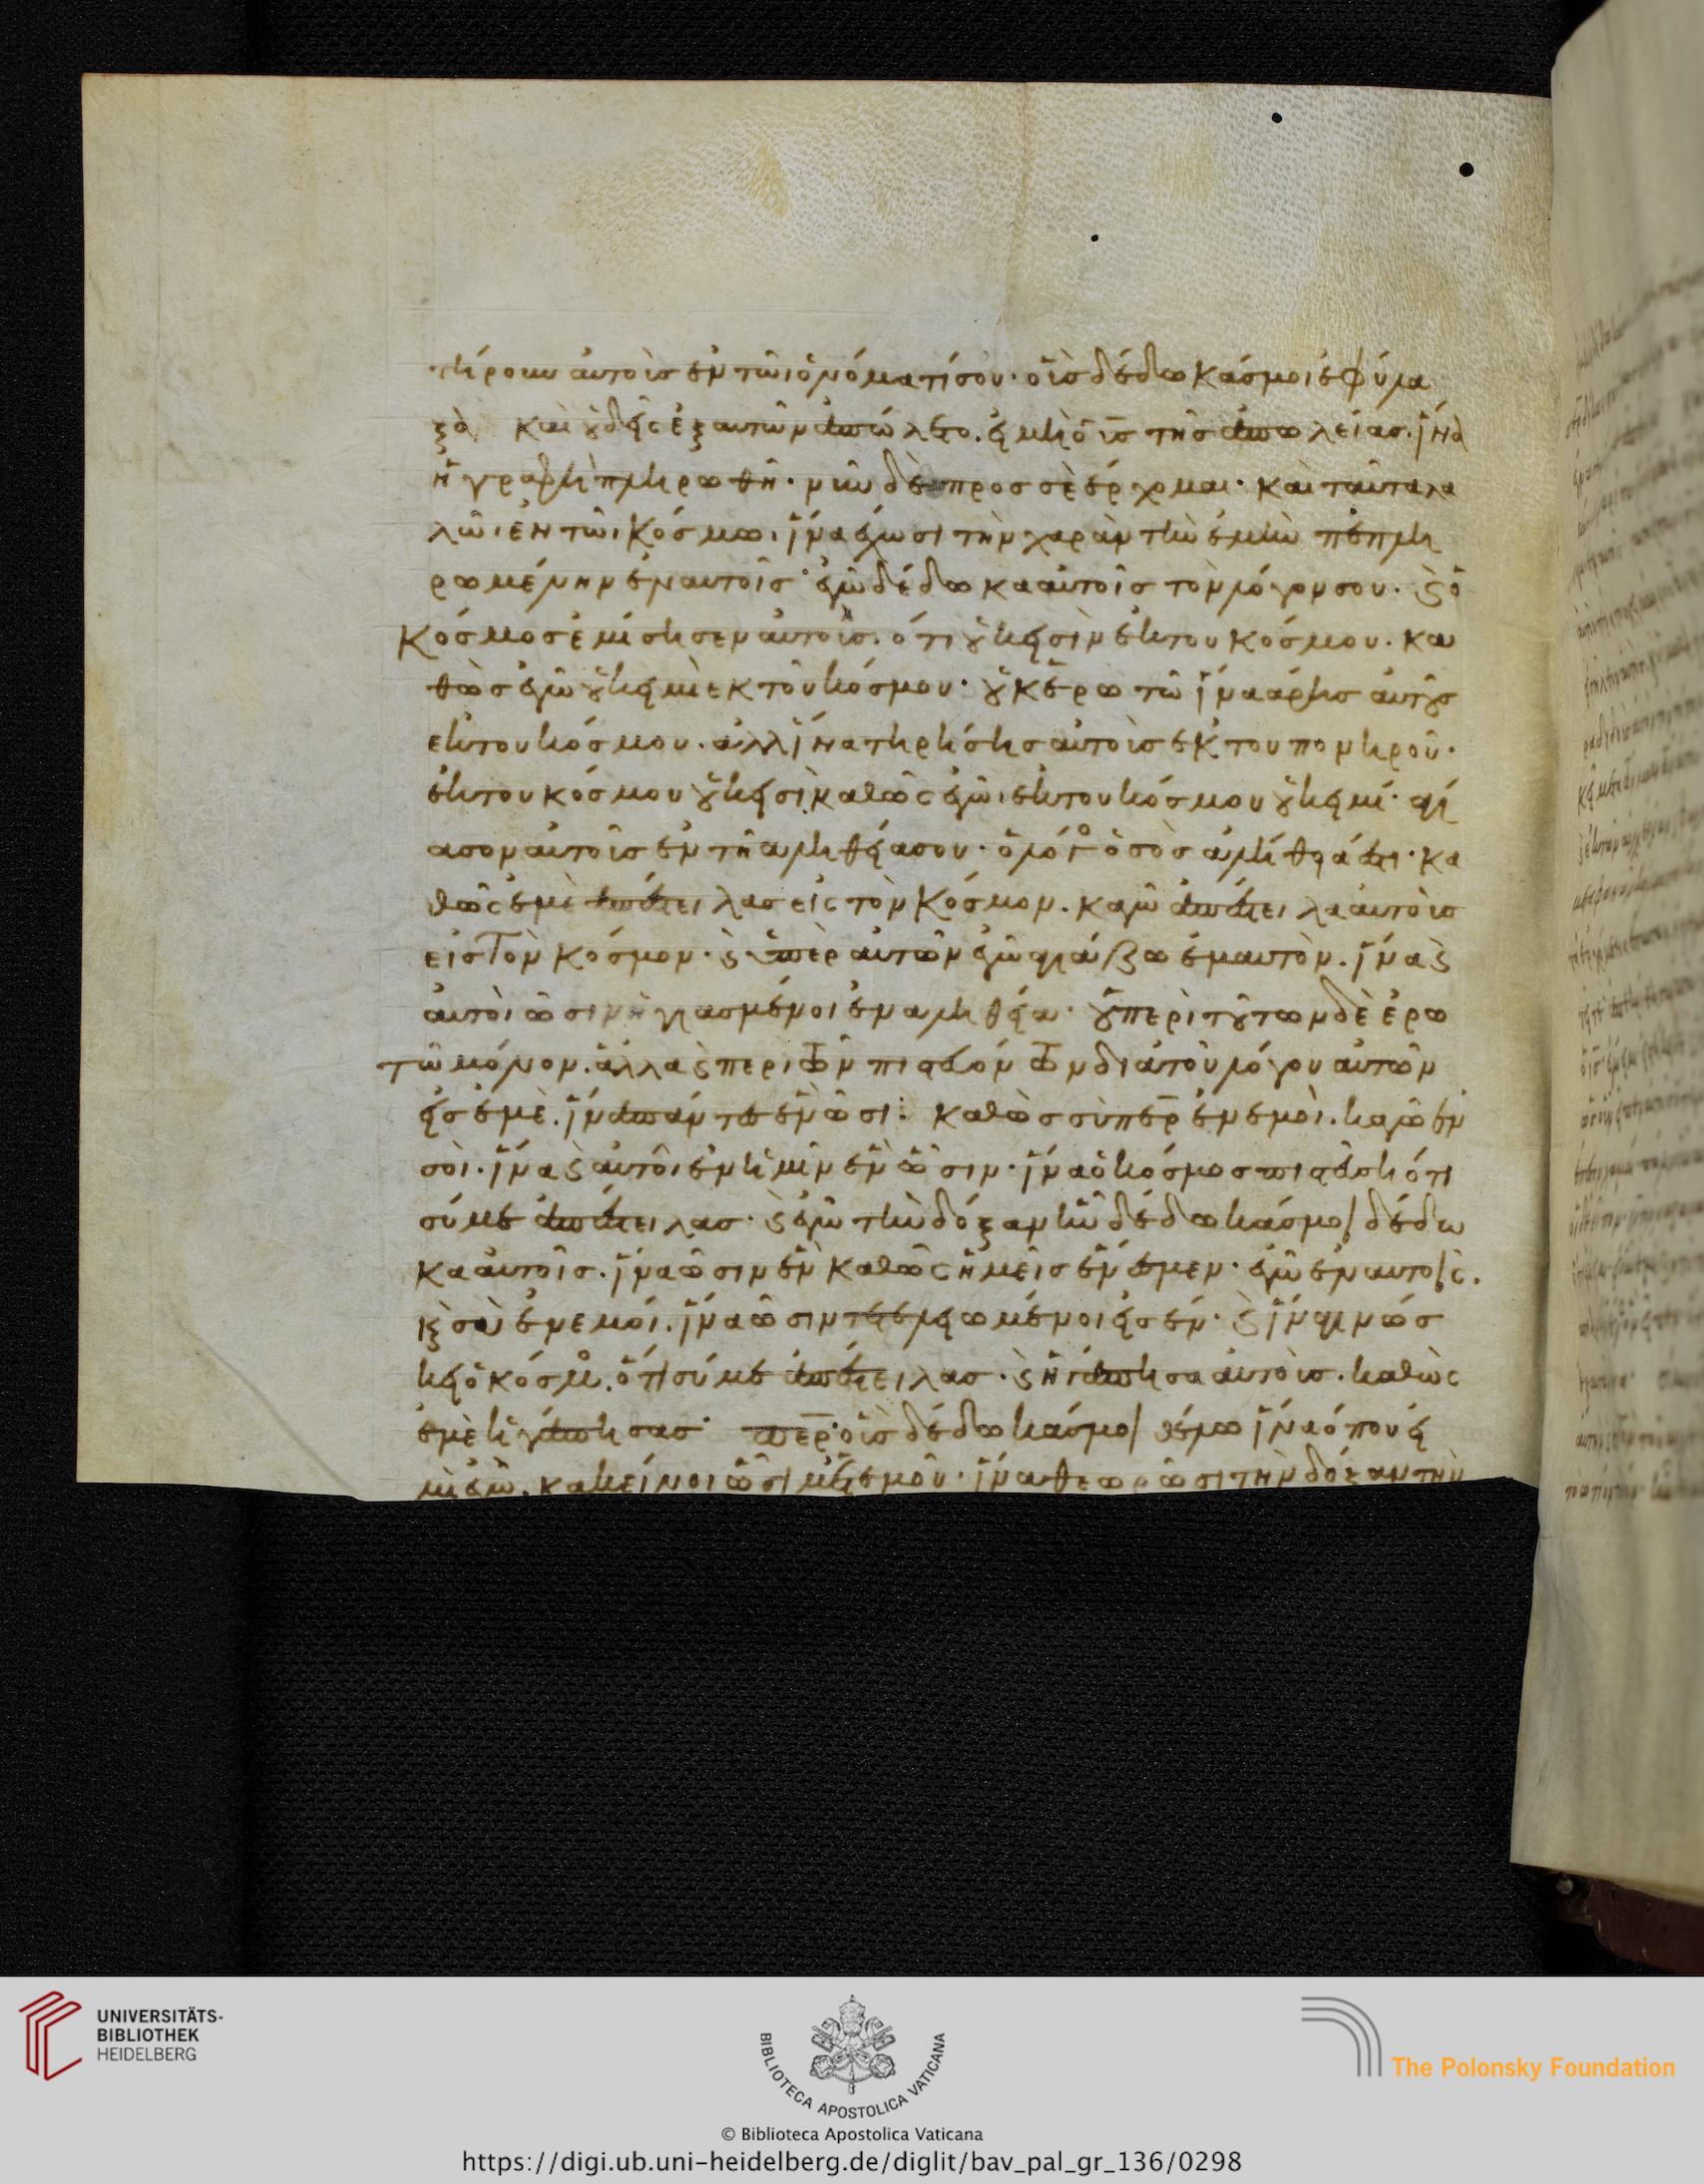 τήρουν αὐτοὺς ἐν τῶι ὀνόματί σου· οὓς δέδωκάς μοι ἐφύλα
ξα καὶ οὐδεὶς ἐξ αὐτῶν ἀπώλετο. εἰ μὴ ὁ υ̅ς̅ τῆς ἀπωλείας. ἵνα
ἡ γραφὴ πληρωθῆ· νῦν δὲ προς σὲ ἔρχομαι· καὶ ταῦτα λα
λῶι ἐν τῶι κόσμω. ἵνα ἔχωσι τὴν χαρὰν τὴν ἐμὴν πεπλη
ρωμένην ἐν αυτοῖς· ἐγὼ δέδωκα αὐτοῖς τὸν λόγον σου. ϛ ὁ
κόσμος ἐμίσησεν αὐτοὺς. ότι οὐκ εἰσὶν ἐκ του κόσμου. κα
θὼς ἐγὼ οὐκ εἰμὶ ἐκ τοῦ κόσμου· οὐκ ἐρωτῶ ἵνα άρης αὐτοὺς
εκ του κόσμου. ἀλλ ἵνα τηρήσης αὐτοὺς ἐκ του πονηροῦ·
ἐκ του κόσμου οὐκ εἰσὶ καθὼς ἐγὼι ἐκ του κόσμου οὐκ εἰμί· αγί
ασον αὐτοὺς ἐν τῆ αληθεία σου· ὁ λόγος ὁ σὸς ἀλήθειά ἐστι· κα
θὼς ἐμὲ ἀπέστειλας εἰς τὸν κόσμον. καγὼ ἀπέστειλα αὐτοὺς
εἰς τὸν κόσμον· ϛ ὑπὲρ αὐτῶν ἐγὼ αγιάζω ἐμαυτὸν. ἵνα ϛ
αὐτοὶ ὦσιν ἡγιασμένοι ἐν αληθεία· οὐ περὶ τούτων δὲ ἐρω
τῶ μόνον. ἀλλα ϛ περι τῶν πιστευόντων διὰ τοῦ λόγου αὐτῶν
εἰς ἐμὲ. ἵνα πάντες ἓν ὦσι· καθὼς σὺ πε̅ρ̅ ἐν ἐμοὶ. καγὼ ἐν
σοὶ. ἵνα ϛ αὐτοὶ ἐν ἡμῖν ἓν ὦσιν· ἵνα ὁ κόσμος πιστεύση ότι
σύ με ἀπέστειλας· ϛ ἐγὼ τὴν δόξαν ἣν δέδωκάς μοι δέδω
κα αὐτοῖς. ἵνα ὦσιν ἓν καθὼς ἡμεῖς ἕν ἐσμεν· ἐγὼ ἐν αυτοῖς.
κϛ σὺ ἐν εμοί. ἵνα ὦσιν τετελειωμένοι εἰς ἕν· ϛ ἵνα γινώσ
κει ὁ κόσμος. ὅτι σύ με ἀπέστειλας· ϛ ἠγάπησα αὐτοὺς. καθὼς
ἐμὲ ἠγάπησας· πε̅ρ̅· οὓς δέδωκάς μοι θέλω ἵνα όπου εἰ
μὶ ἐγὼ. κακεῖνοι ὦσι μετ ἐμοῦ· ἵνα θεωρῶσι τὴν δόξαν τὴν
UNIVERSITÄTS-
BIBLIOTHEK
HEIDELBERG
BIBLIOTECA APOSTOLICA VATICANA
The Polonsky Foundation
© Biblioteca Apostolica Vaticana
https://digi.ub.uni-heidelberg.de/diglit/bav_pal_gr_136/0298